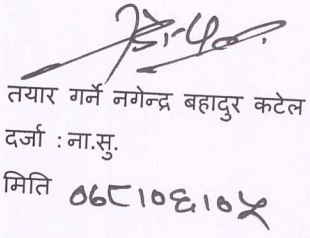 तयार गर्ने नगेन्द्र बहादुर कटेल
दर्जा : ना.सु.
मिति ०६८।०६।०५